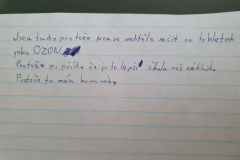 Jsem tady protože jsem se nechtěla učit na tabletech
jako OZON.
Protože mi přijde že je to lepší škola než základka
Protože tu mám kamarádky.